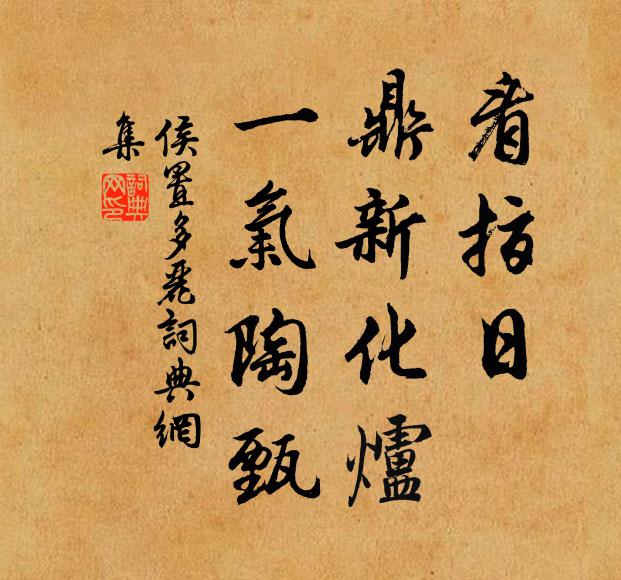 看指日
鼎新化爐
一氣陶甄
侯置多麗詞典網
集
詞典
网印